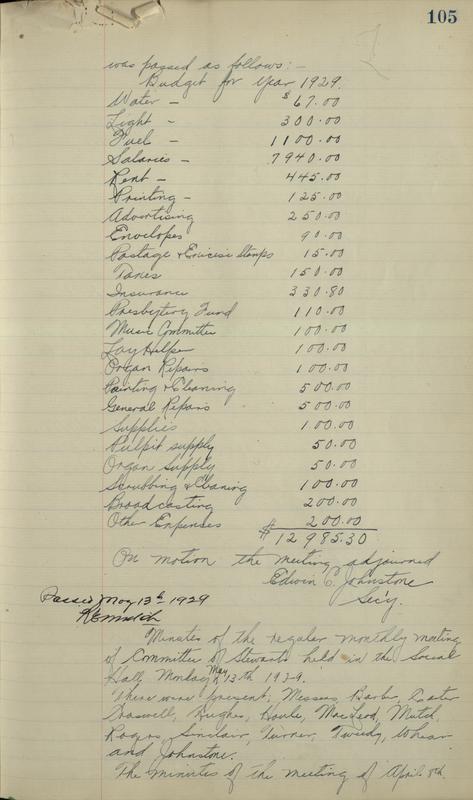 105
was passed as follows:-
Budget for Year 1929.
Water - $67.00
Light - 300.00
Fuel - 1100.00
Salaries - 7940.00
Rent - 445.00
Printing - 125.00
Advertising 250.00
Envelopes 90.00
Postage & Excise Stamps 15.00
Taxes 150.00
Insurance 330.80
Presbytery Fund 110.00
Music Committee 100.00
Lay Helper 100.00
Organ Repairs 100.00
Painting & Cleaning 500.00
General Repairs 500.00
Supplies 100.00
Pulpit supply 50.00
Organ Supply 50.00
Scrubbing & Cleaning 100.00
Broadcasting 200.00
Other Expenses 200.00
$12985.30
On motion the meeting adjourned
Edwin C. Johnstone
Sec'y.
Passed May 13th 1929
Minutes of the regular monthly meeting
of Committee of Stewarts held in the Social
Hall, Monday May 13th 1929.
There were present, Messrs Barber,
Braswell, Hughes, Houle, MacLeod, Mutch,
Rogers, Sinclair, Turner, Tweedy,
and Johnstone.
The minutes of the meeting of April 8th